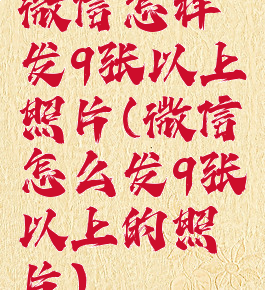 微信怎样
发9张以上
照片(微信
怎么发9张
以上的照
片)